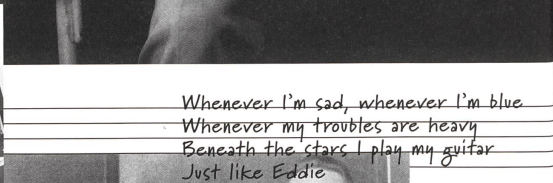 Whenever I'm sad, whenever I'm blue
Whenever my troubles are heavy
Beneath the stars I play my guitar
Just like Eddie